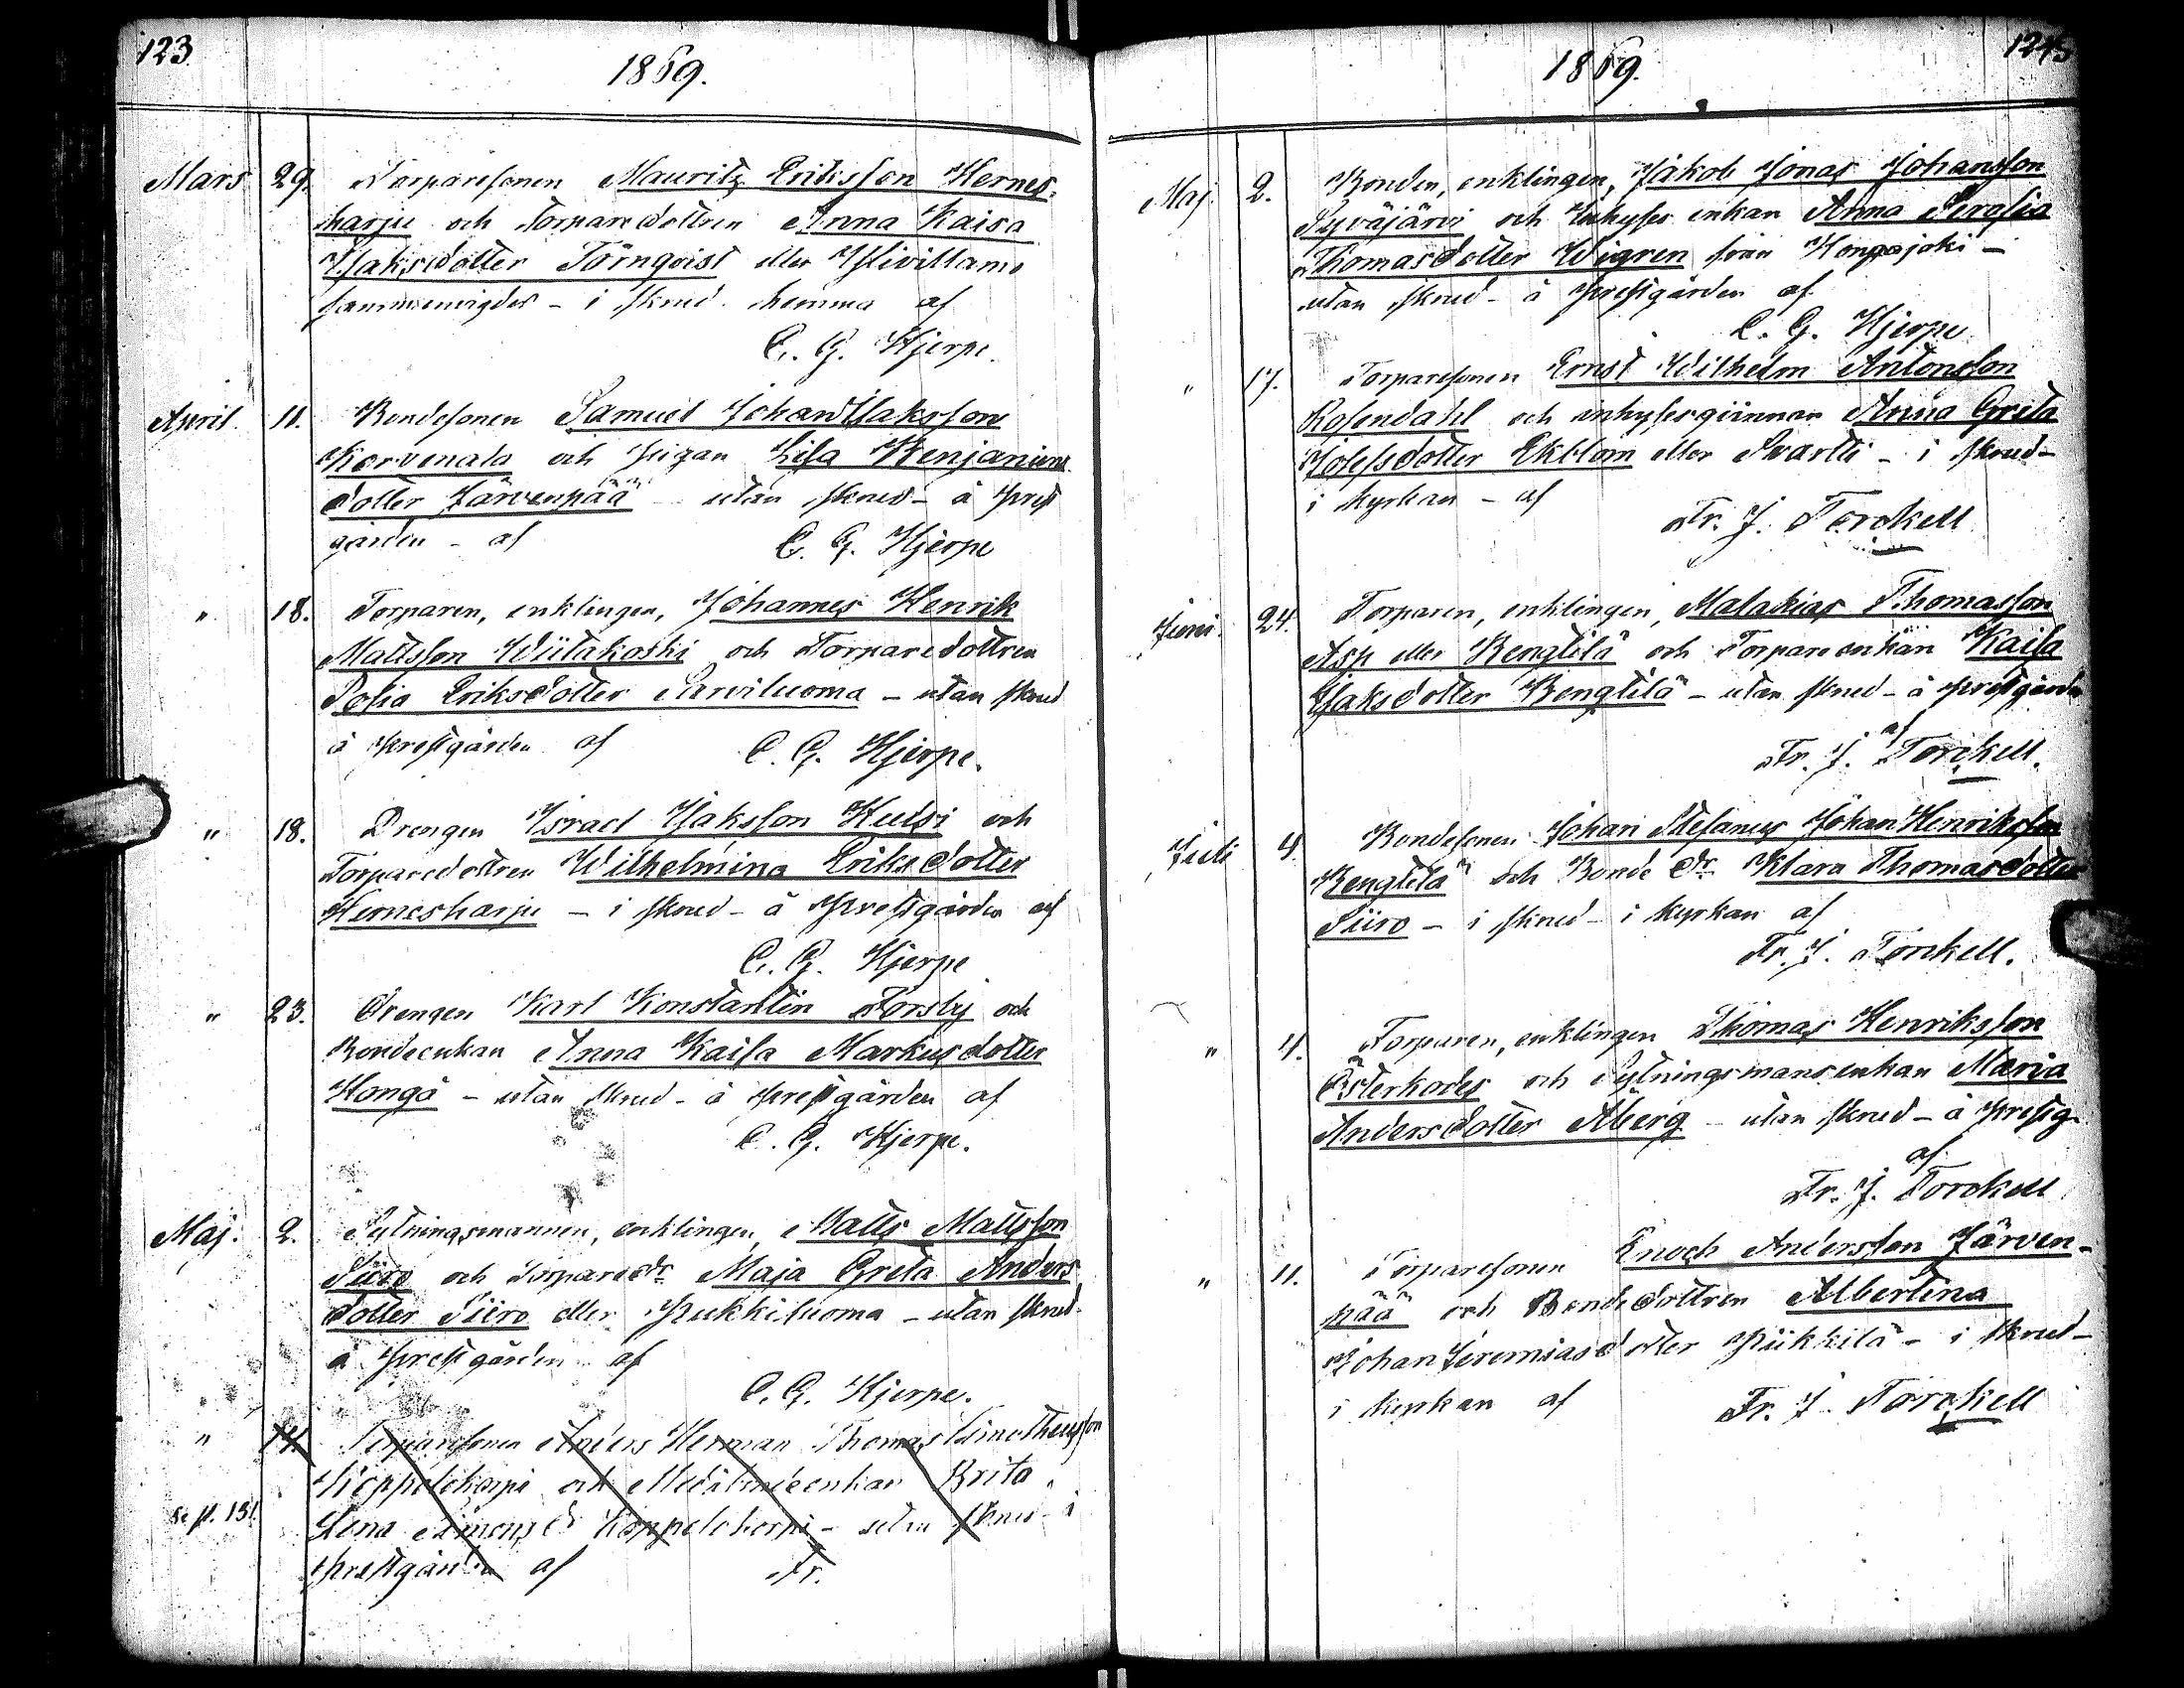 123
1869.
Mars 29. Torparesonen Mauritz Eriksson Hernes-
harju och Torparedottren Anna Kaisa
Isaksdotter Törnqvist eller Ylivillamo
sammanvigdes - i skrud hemma af
C. G. Hjerpe.
April. 11. Bondesonen Samuel Johan Isaksson
Korvenala och pigan Lisa Benjamins
dotter Järvenpää utan skrud - å prest
gården - af C. G. Hjerpe
" 18. Torparen, enklingen, Johannes Henrik
Mattsson Wiitakoski och Torparedottren
Sofia Eriksdotter Sarviluoma - utan skrud
å prestgården af C. G. Hjerpe.
" 18. Drengen Israel Isaksson Keelsi och
Torparedottren Wilhelmina Eriksdotter
Hernesharju - i skrud - å prestgården af
C. G. Hjerpe
" 23. Drengen Karl Konstantin Forsby och
Bondeenkan Anna Kaisa Markusdotter
Hongå - utan skrud - å prestgården af
C. G. Hjerpe.
Maj. 2. Sytningsmannen, enklingen, Matts Mattsson
Siiro och Torparedr Maja Greta Anders
dotter Siiro eller Pukkiluoma - utan skrud
å prestgården af
C. G. Hjerpe.
" 17. Torparesonen Anders Herman Thomas Timotheusson
Koppelokorpi och Enkan Brita
Lena Simonsd Koppelokorpi - utan skrud - å
Se p. 131.
prestgården af Fr.
1245
1869.
Maj. 2. Bonden, enklingen, Jakob Jonas Johansson
Syväjärvi och Inhyses enkan Anna Serafia
Thomasdotter Wigren från Hongajoki -
utan skrud - å prestgården af
C. G. Hjerpe
" 17. Torparesonen Ernst Wilhelm Antonsson
Rosendahl och inhysesqvinnan Anna Greta
Josefsdotter Ekblom eller Svartti - i skrud -
i kyrkan - af Fr. J. Torckell
Juni. 24. Torparen, enklingen, Malakias Thomasson
Asp eller Bengtilä och Torpareenkan Kaisa
Isaksdotter Bengtilä - utan skrud - å prestgården
af
Fr. J. Torckell.
Juli 4. Bondesonen Johan Stefanus Johan Henriksson
Bengtilä och Bonde dr Klara Thomasdotter
Siiro - i skrud - i kyrkan af
Fr. J. Torckell.
" 4. Torparen, enklingen Thomas Henriksson
Österkodes och Sytningsmansenkan Maria
Andersdotter Åberg - utan skrud - å prestg.
af
Fr. J. Torckell
" 11. Torparesonen Enoch Andersson Järven-
pää och Bondedottren Albertina
Johan Jeremiasdotter Piikkilä - i skrud -
i kyrkan af Fr. J. Torckell